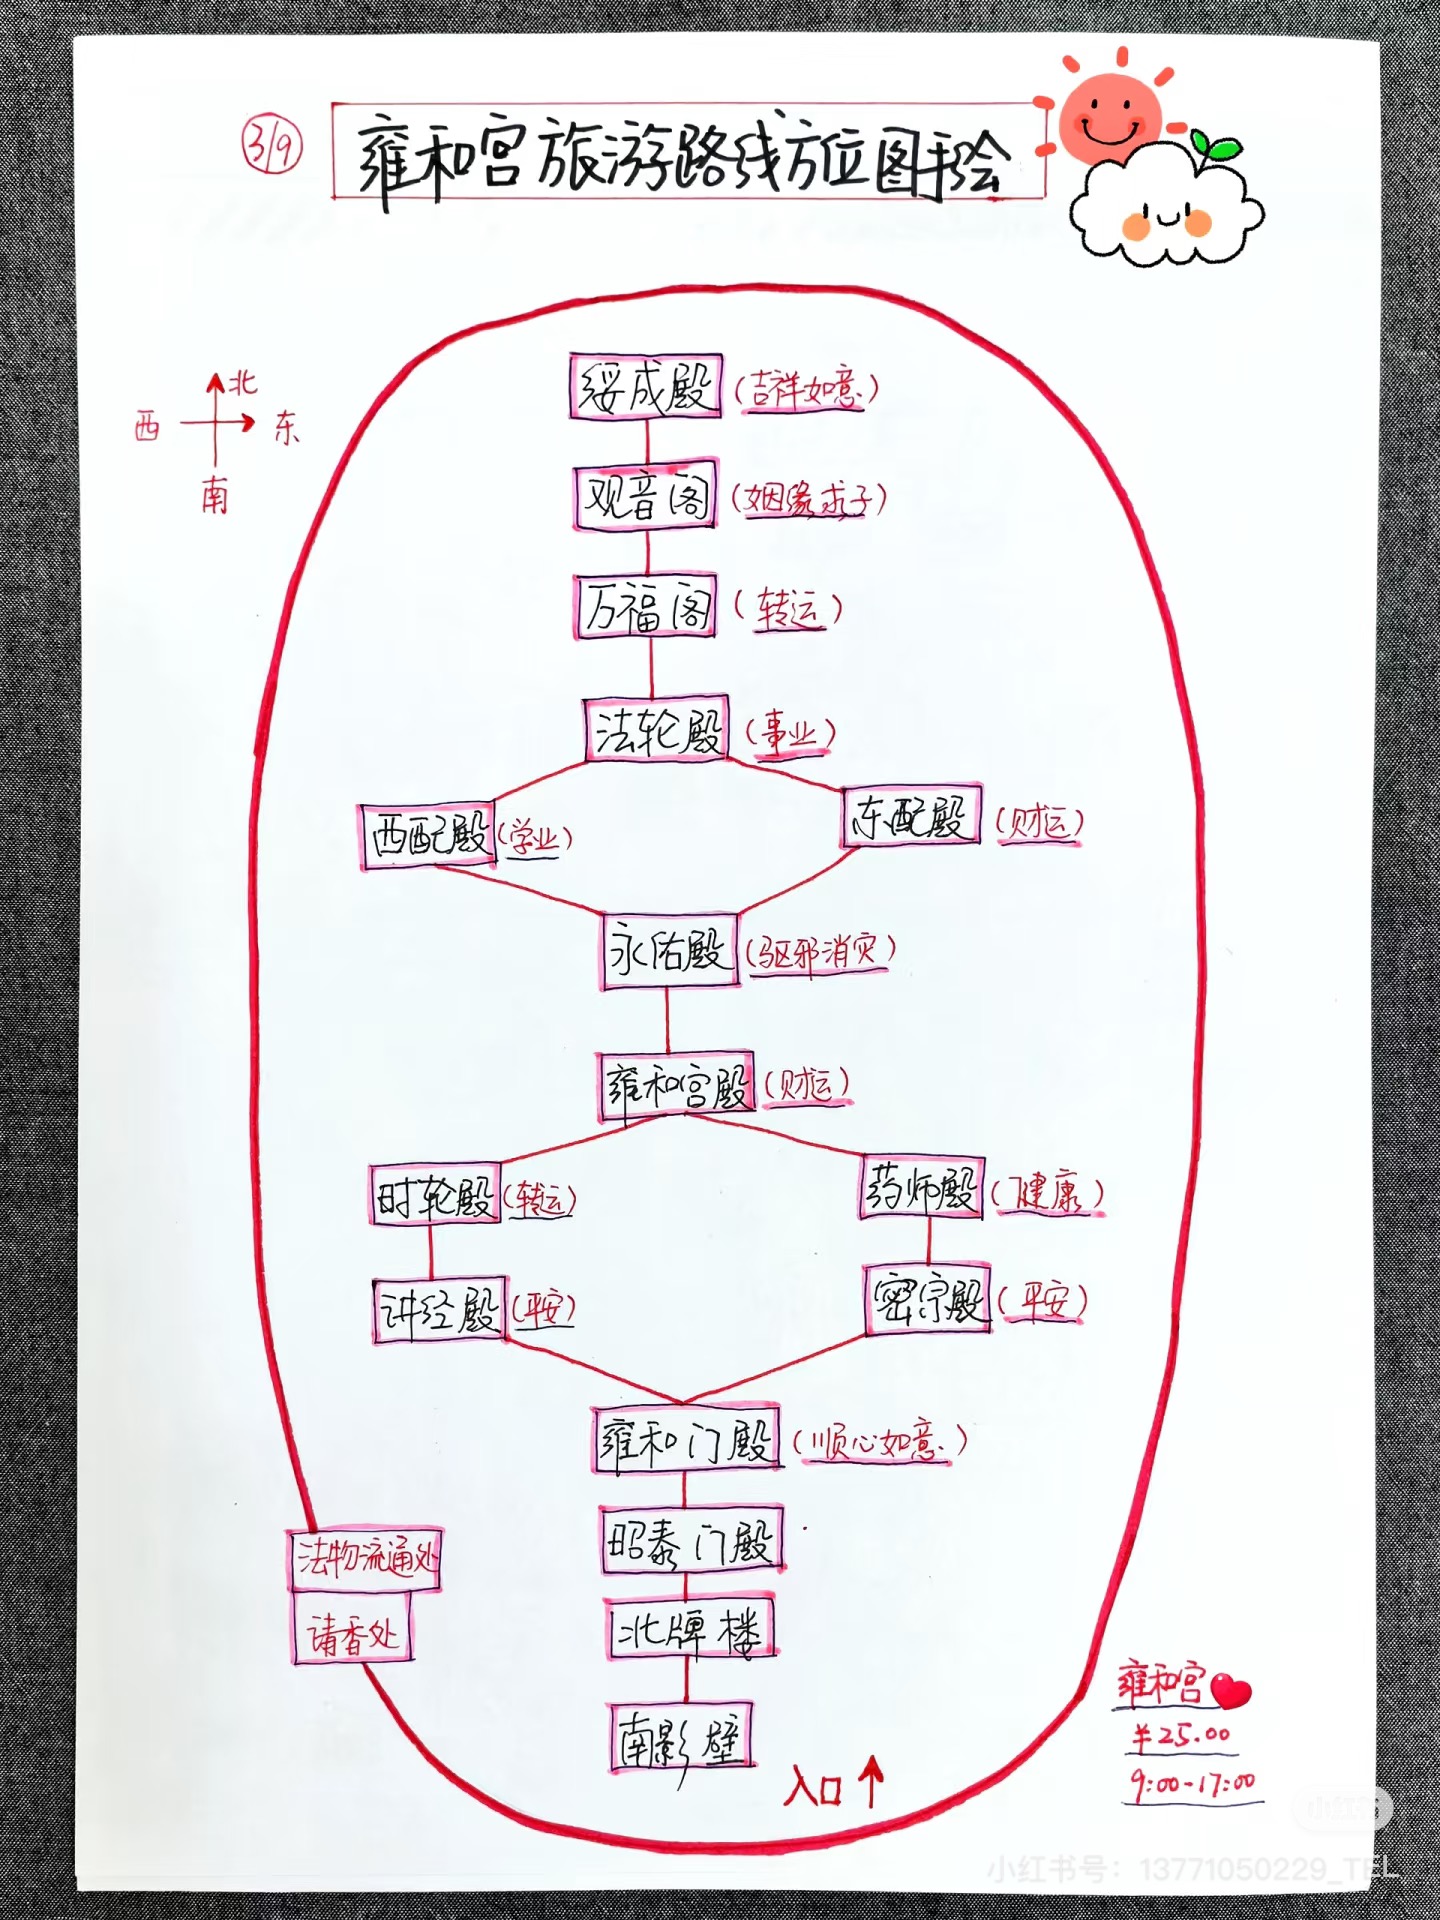 3/9
雍和宫旅游路线方位图手绘
北
西 东
南
绥成殿 (吉祥如意)
观音阁 (姻缘求子)
万福阁 (转运)
法轮殿 (事业)
西配殿 (学业) 东配殿 (财运)
永佑殿 (驱邪消灾)
雍和宫殿 (财运)
时轮殿 (转运) 药师殿 (健康)
讲经殿 (平安) 密宗殿 (平安)
雍和门殿 (顺心如意)
昭泰门殿
法物流通处
北牌楼
请香处
南影壁
入口
雍和宫
¥25.00
9:00-17:00
小红书
小红书号：13771050229_TEL